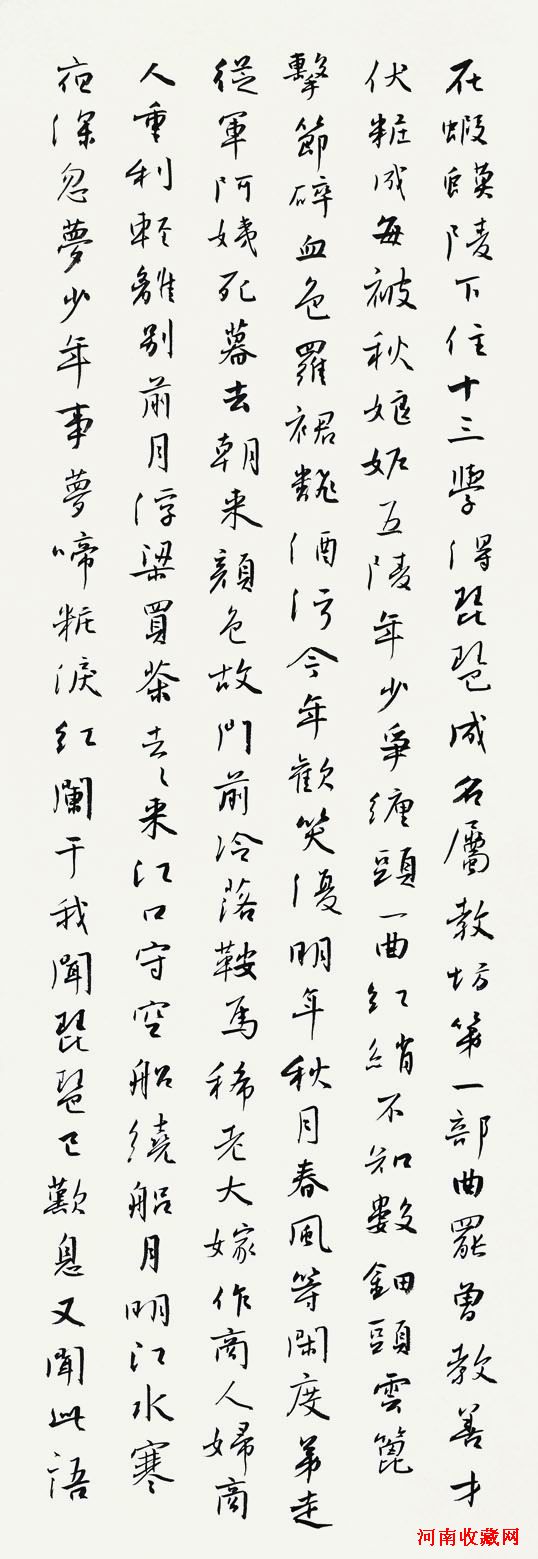 在蝦蟆陵下住十三學得琵琶成名屬教坊第一部曲罷曾教善才
伏粧成每被秋娘妬五陵年少爭纏頭一曲紅綃不知數鈿頭雲篦
擊節碎血色羅裙飜酒污今年歡笑復明年秋月春風等閑度弟走
從軍阿姨死暮去朝来顏色故門前冷落鞍馬稀老大嫁作商人婦商
人重利輕離別前月浮梁買茶去々来江口守空船繞船月明江水寒
夜深忽夢少年事夢啼粧淚紅闌干我聞琵琶已歎息又聞此語
河南收藏网